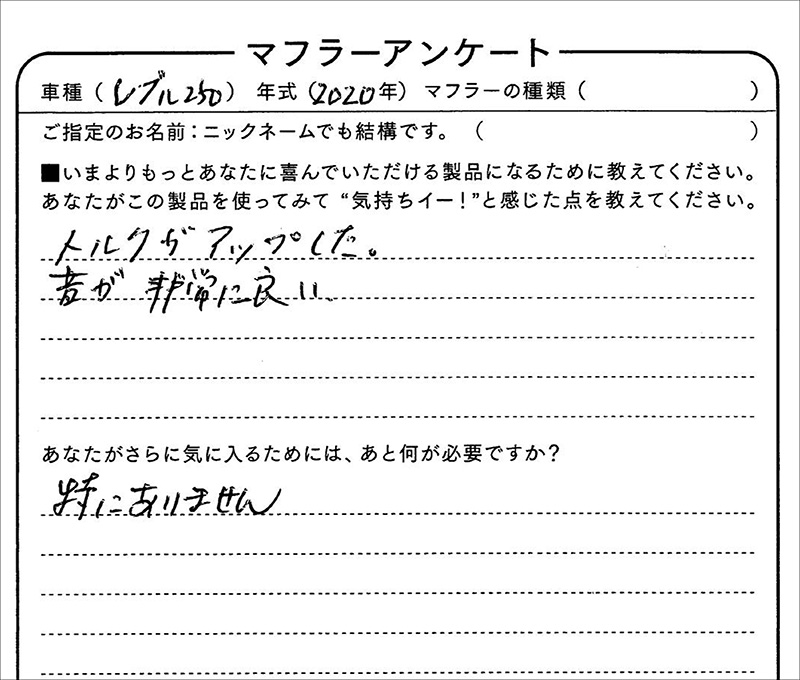 マフラーアンケート
車種（レブル250）　年式（2020年）　マフラーの種類（　　　）
ご指定のお名前：ニックネームでも結構です。（　　　）
■いまよりもっとあなたに喜んでいただける製品になるために教えてください。
あなたがこの製品を使ってみて“気持ちイー！”と感じた点を教えてください。
トルクがアップした。
音が非常に良い
あなたがさらに気に入るためには、あと何が必要ですか？
特にありません